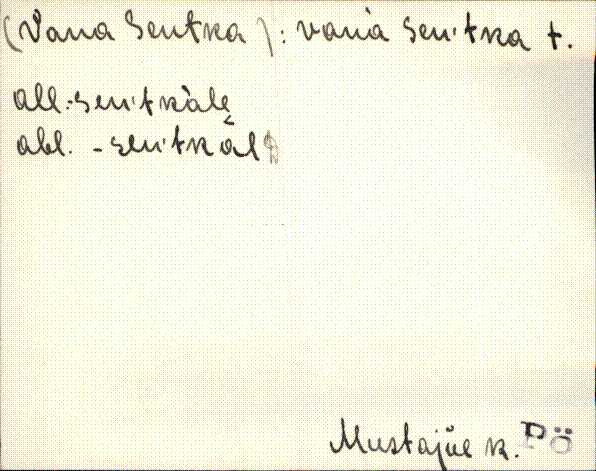 (Vana Sentka): vanà sen·tka t.
all. -sen·tkàle
abl. -sen·tkàl
Mustajõe k. Põ